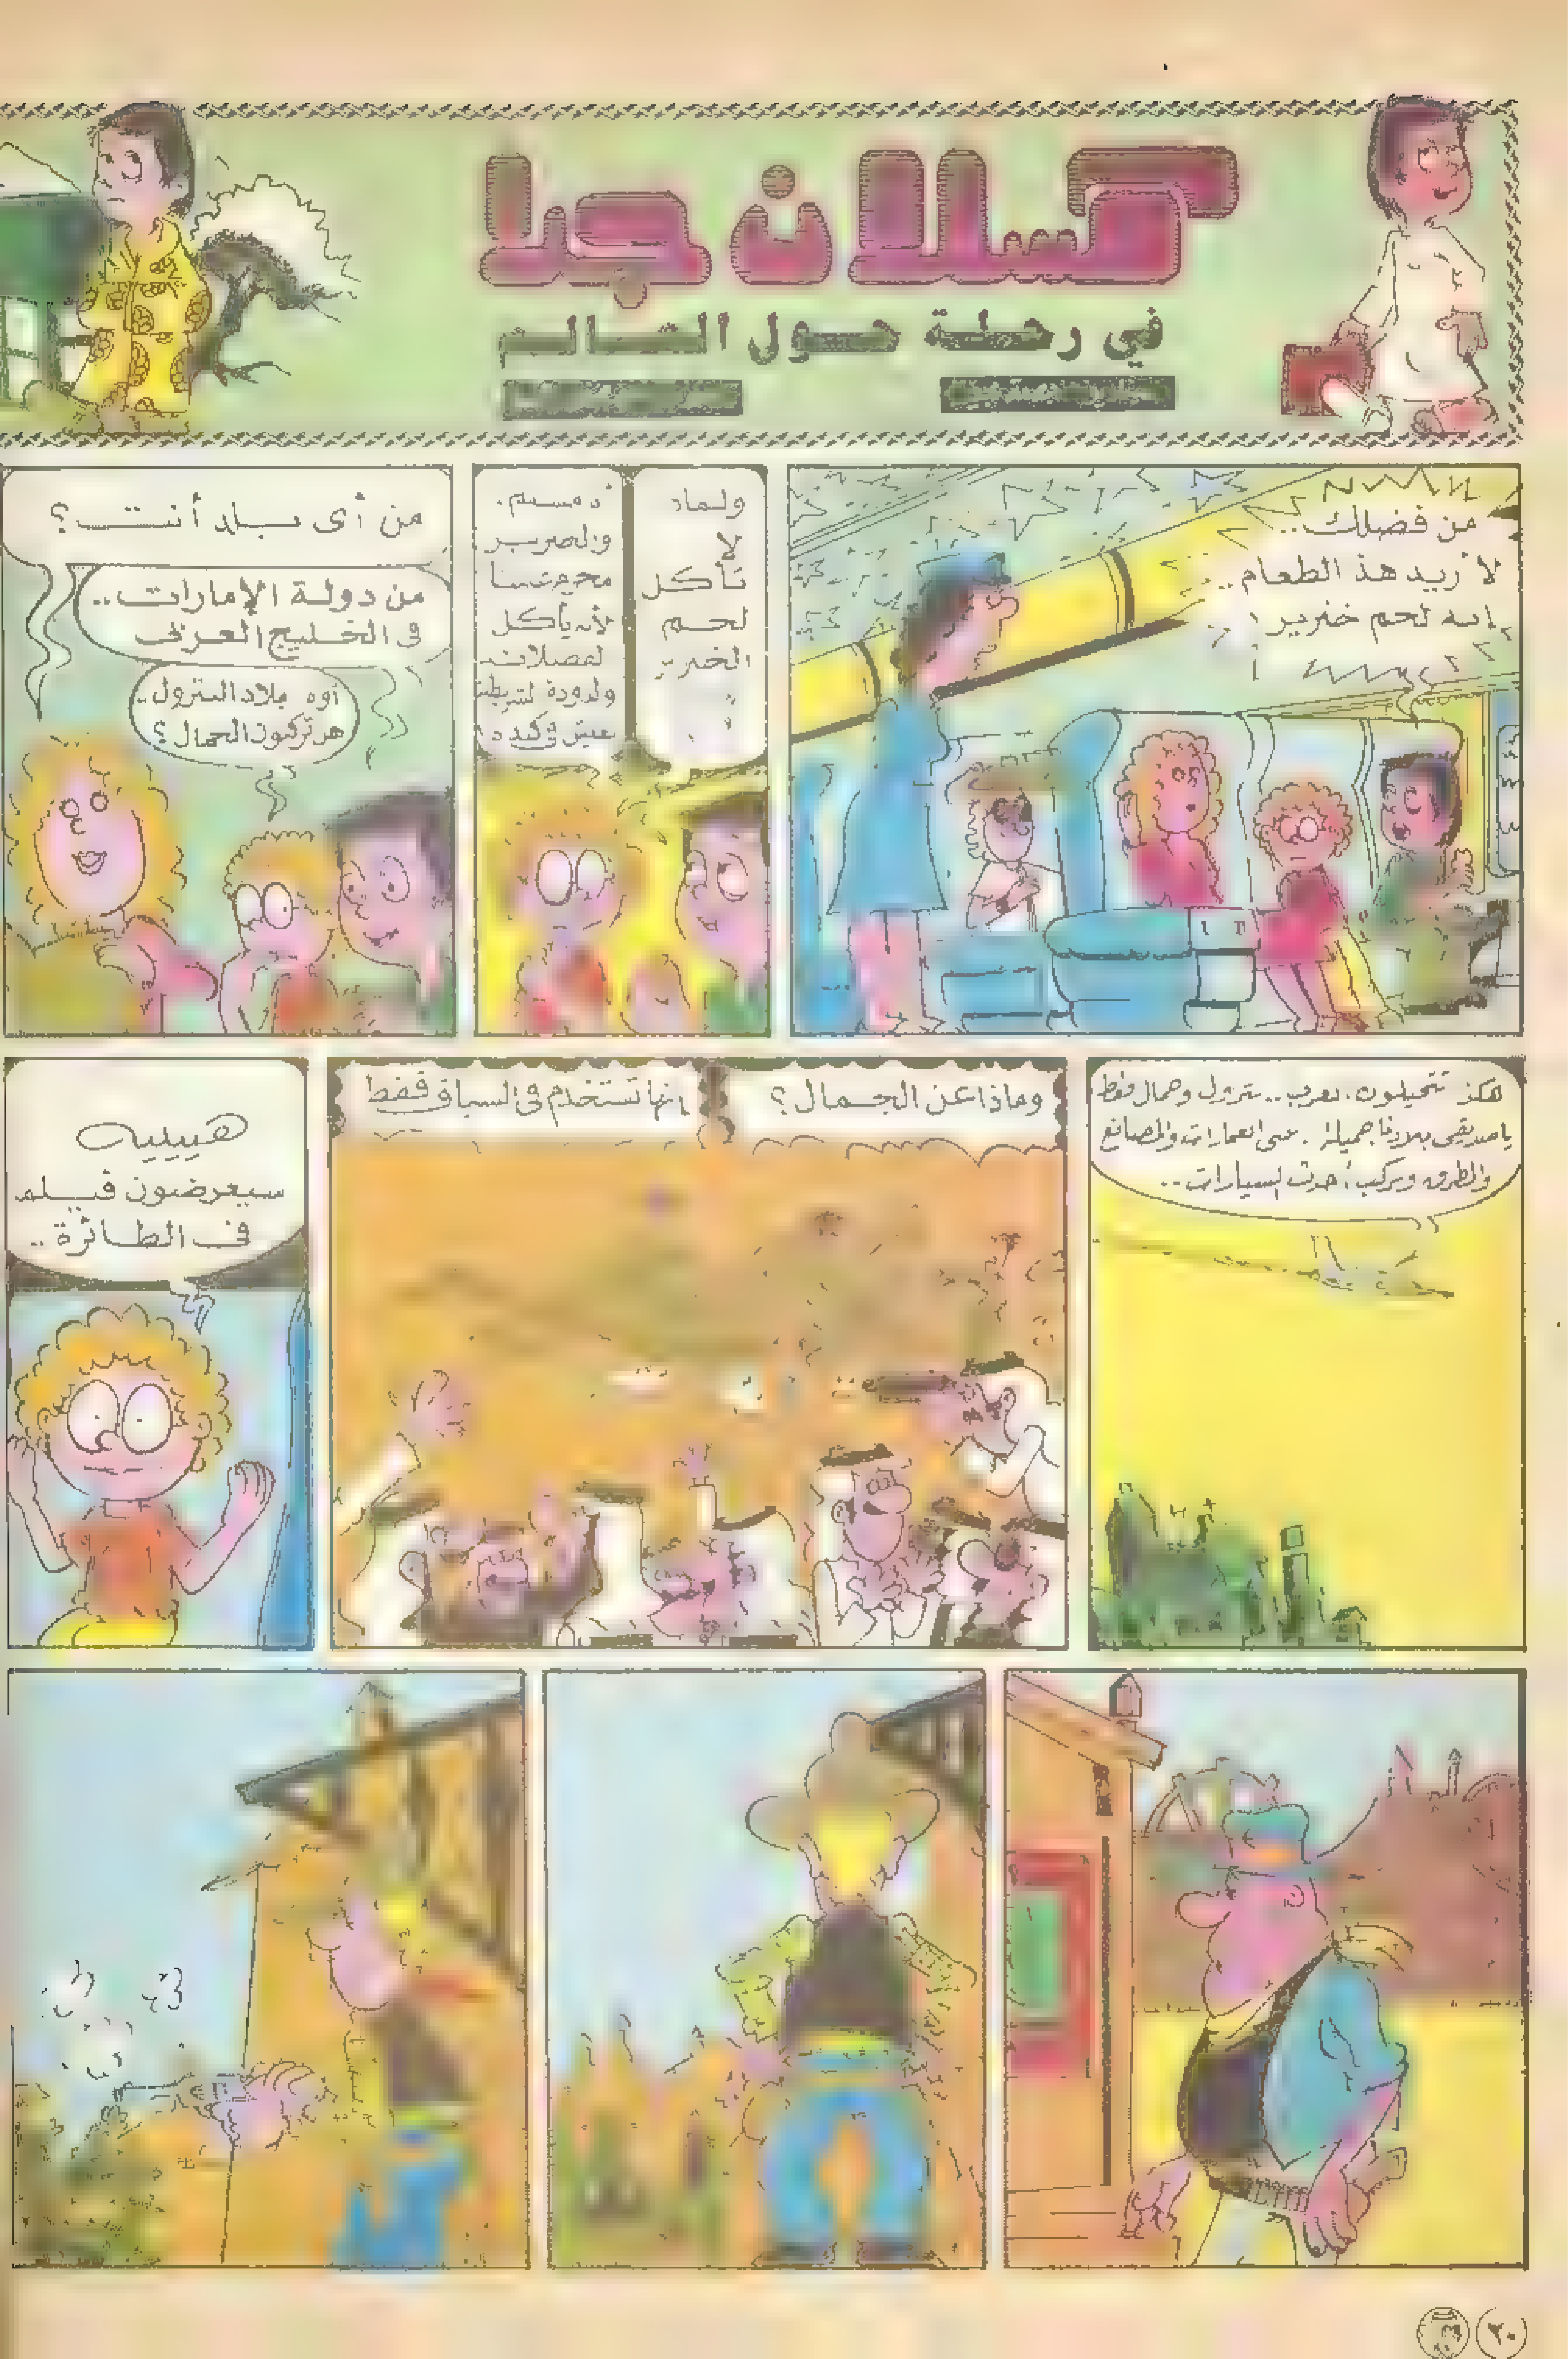 كسلان جدا
في رحلة حول العالم
من فضلك..
لا أريد هذا الطعام..
إنه لحم خنزير!
ولماذا
لا
تأكل
لحم
الخنزير
؟
مسلم.
والخنزير
محرم
لأنه يأكل
الفضلات
والدودة الشريطية
تعيش في كبده
من أى بلد أنت؟
من دولة الإمارات..
فى الخليج العربى
أوه بلاد البترول..
هل تركبون الجمال؟
هكذا تتخيلون العرب.. بترول وجمال فقط
يا صديقى بلادنا جميلة. العمارات والمصانع
والطرق ونركب أحدث السيارات..
وماذا عن الجمال؟
إنها تستخدم فى السباق فقط
هييييه
سيعرضون فيلم
فى الطائرة..
٢٠